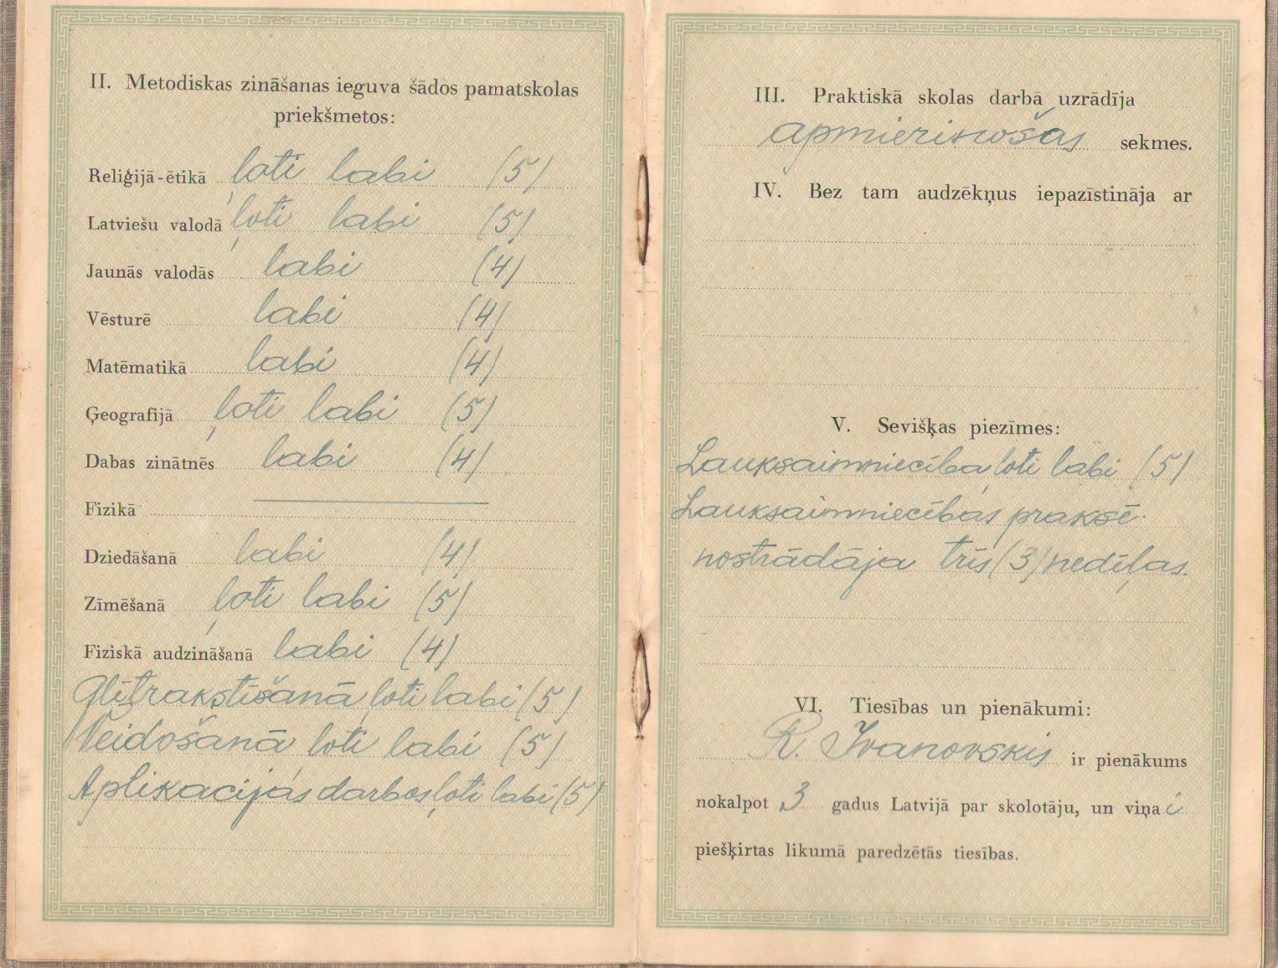 II. Metodiskas zināšanas ieguva šādos pamatskolas
priekšmetos:
Reliģijā-ētikā ļoti labi (5)
Latviešu valodā ļoti labi (5)
Jaunās valodās labi (4)
Vēsturē labi (4)
Matēmatikā labi (4)
Ģeografijā ļoti labi (5)
Dabas zinātnēs labi (4)
Fizikā
Dziedāšanā labi (4)
Zīmēšanā ļoti labi (5)
Fiziskā audzināšanā labi (4)
Glītrakstīšanā ļoti labi (5)
Veidošanā ļoti labi (5)
Aplikacijas darbos ļoti labi (5)
III. Praktiskā skolas darbā uzrādīja
apmierinošas sekmes.
IV. Bez tam audzēkņus iepazīstināja ar
V. Sevišķas piezīmes:
Lauksaimniecība ļoti labi (5)
Lauksaimniecības praksē
nostrādāja trīs (3) nedēļas.
VI. Tiesības un pienākumi:
R. Ivanovskis ir pienākums
nokalpot 3 gadus Latvijā par skolotāju, un viņai
piešķirtas likumā paredzētās tiesības.